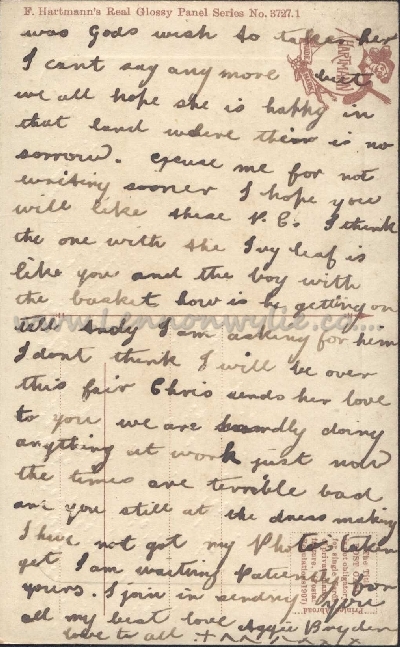 F. Hartmann's Real Glossy Panel Series No. 3727.1
was Gods wish to taken her
I cant say any more but
HARTMANN
we all hope she is happy in
that land where their is no
sorrow. excuse me for not
writing sooner I hope you
will like these P.Cs I think
the one with the Ivy leaf is
like you and the boy with
the basket how is he getting on
www.lennonwylie.co....
tell Andy I am asking for him
I dont think I will be over
this fair Chris sends her love
to you we are doing
anything at work just now
the times are terrible bad
are you still at the dress making
I have not got my Photo taken
yet I am waiting Patiently for
yours. I join in sending you
all my best love Aggie Bryden
love to all
Printed Abroad